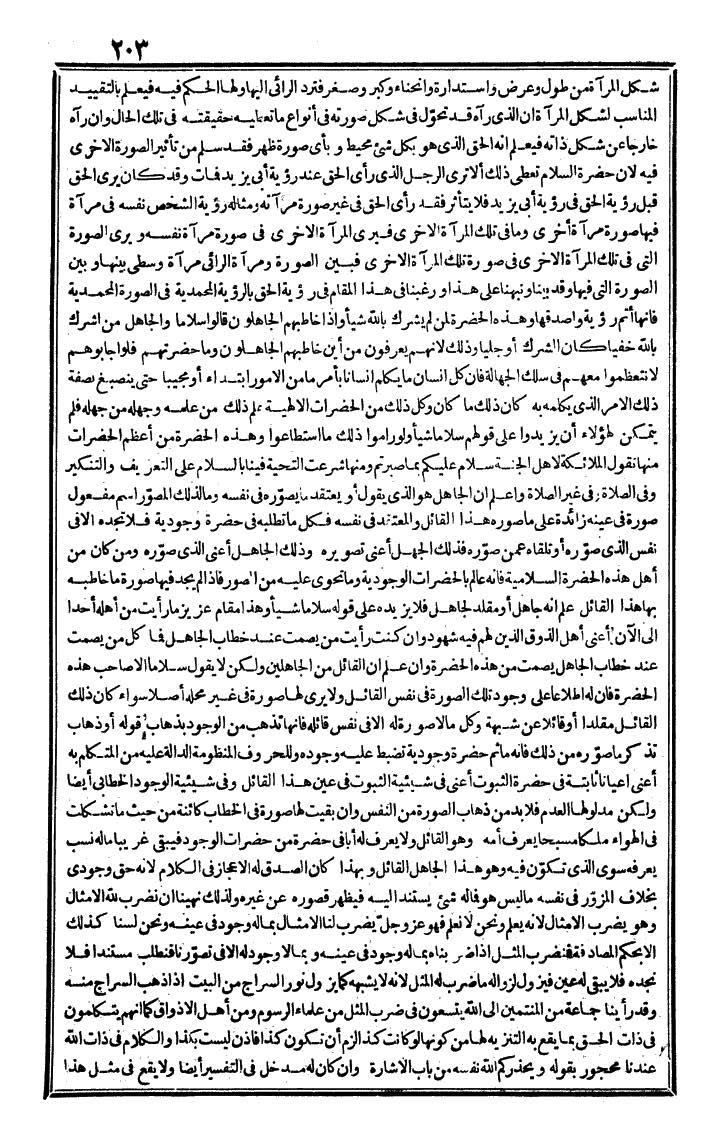 ٢٠٣
شكل المرآة من طول وعرض واستدارة وانحناء وكبر وصغر فترد الرائي اليها ولها الحكم فيه فيعلم بالتقييد
المناسب لشكل المرآة ان الذي رآه قد تحوّل في شكل صورته في أنواع ما تعطيه حقيقته في تلك الحال وان رآه
خارجا عن شكل ذاته فيعلم انه الحق الذي هو بكل شئ محيط وبأي صورة ظهر فقد سلم من تأثير الصورة الاخرى
فيه لان حضرة السلام تعطي ذلك ألا ترى الرجل الذي رأى الحق عند رؤية أبي يزيد فمات وقد كان يرى الحق
قبل رؤية الحق في رؤية أبي يزيد فلا يتأثر فقد رأى الحق في غير صورة مرآته ومثاله رؤية الشخص نفسه في مرآة
فيها صورة مرآة أخرى وما في تلك المرآة الاخرى فيرى المرآة الاخرى في صورة مرآة نفسه ويرى الصورة
التي في تلك المرآة الاخرى في صورة تلك المرآة الاخرى فبين الصورة ومرآة الرائي مرآة وسطى بينها وبين
الصورة التي فيها وقد بينا ونبهنا على هذا ورغبنا في هذا المقام في رؤية الحق بالرؤية المحمدية في الصورة المحمدية
فانها أتم رؤية وأصدقها وهذه الحضرة لمن لم يشرك بالله شيأ واذا خاطبهم الجاهلون قالوا سلاما والجاهل من اشرك
بالله خفيا كان الشرك أو جليا وذلك لانهم يعرفون من أين خاطبهم الجاهلون وما حضرتهم فلو أجابوهم
لانتظموا معهم في سلك الجهالة فان كل انسان ما يكلم انسانا بأمر ما من الامور ابتداء أو مجيبا حتى ينصبغ بصفة
ذلك الامر الذي يكلمه به كان ذلك ما كان وكل ذلك من الحضرات الالهية علم ذلك من علمه وجهله من جهله فلم
يتمكن لهؤلاء أن يزيدوا على قولهم سلاما شيأ ولو راموا ذلك ما استطاعوا وهذه الحضرة من أعظم الحضرات
منها تقول الملائكة لاهل الجنة سلام عليكم بما صبرتم ومنها شرعت التحية فينا بالسلام على التعريف والتنكير
وفي الصلاة وفي غير الصلاة واعلم ان الجاهل هو الذي يقول أو يعتقد ما يصوّره في نفسه وما لذلك المصوّر اسم مفعول
صورة في عينه زائدة على ما صوره هذا القائل والمعتقد في نفسه فكل ما تطلبه في حضرة وجودية فلا تجده الا في
نفس الذي صوّره أو تلقاه عمن صوّره فذلك الجهل أعني تصويره وذلك الجاهل أعني الذي صوّره ومن كان من
أهل هذه الحضرة السلامية فانه عالم بالحضرات الوجودية وما تحوي عليه من الصور فاذا لم يجد فيها صورة ما خاطبه
بها هذا القائل علم انه جاهل أو مقلد لجاهل فلا يزيده على قوله سلاما شيأ وهذا مقام عزيز ما رأيت من أهله أحدا
الى الآن أعني أهل الذوق الذين لهم فيه شهود وان كنت رأيت من يصمت عند خطاب الجاهل فما كل من يصمت
عند خطاب الجاهل يصمت من هذه الحضرة وان علم ان القائل من الجاهلين ولكن لا يقول سلاما الا صاحب هذه
الحضرة فان له اطلاعا على وجود تلك الصورة في نفس القائل ولا يرى لها صورة في غير محله أصلا سواء كان ذلك
القائل مقلدا أو قائلا عن شبهة وكل ما لا صورة له الا في نفس قائله فانها تذهب من الوجود بذهاب قوله أو ذهاب
تذكر ما صوّره من ذلك فانه ما ثم حضرة وجودية تضبط عليه وجوده وللحروف المنظومة الدالة عليه من المتكلم به
أعني اعيانا ثابتة في حضرة الثبوت أعني في شيئية الثبوت في عين هذا القائل وفي شيئية الوجود الخطابي أيضا
ولكن مدلولها العدم فلا بد من ذهاب الصورة من النفس وان بقيت لها صورة في الخطاب كائنة من حيث ما تشكلت
في الهواء ملكا مسبحا يعرف أمه وهو القائل ولا يعرف له أبا في حضرة من حضرات الوجود فيبقى غريبا ما له نسب
يعرفه سوى الذي تكوّن فيه وهو هذا الجاهل القائل وبهذا كان الصدق له الاعجاز في الكلام لانه حق وجودي
بخلاف المزوّر في نفسه ما ليس هو فما له شئ يستند اليه فيظهر قصوره عن غيره ولذلك نهينا ان نضرب لله الامثال
وهو يضرب الامثال لانه يعلم ونحن لا نعلم فهو عز وجلّ يضرب لنا الامثال بما له وجود في عينه ونحن لسنا كذلك
الا بحكم المصادفة فنضرب المثل اذا ضربناه بما له وجود في عينه وبما لا وجود له الا في تصوّرنا فنطلب مستندا فلا
نجده فلا يبقى له عين فيزول لزواله ما ضرب له المثل لانه لا يشبهه كما يزول نور السراج من البيت اذا ذهب السراج منه
وقد رأينا جماعة من المنتمين الى الله يتسعون في ضرب المثل من علماء الرسوم ومن أهل الاذواق كما انهم يتكلمون
في ذات الحق بما يقع به التنزيه لها من كونها لو كانت كذا لزم أن تكون كذا فاذن ليست بكذا والكلام في ذات الله
عندنا محجور بقوله ويحذركم الله نفسه من باب الاشارة وان كان له مدخل في التفسير أيضا ولا يقع في مثل هذا